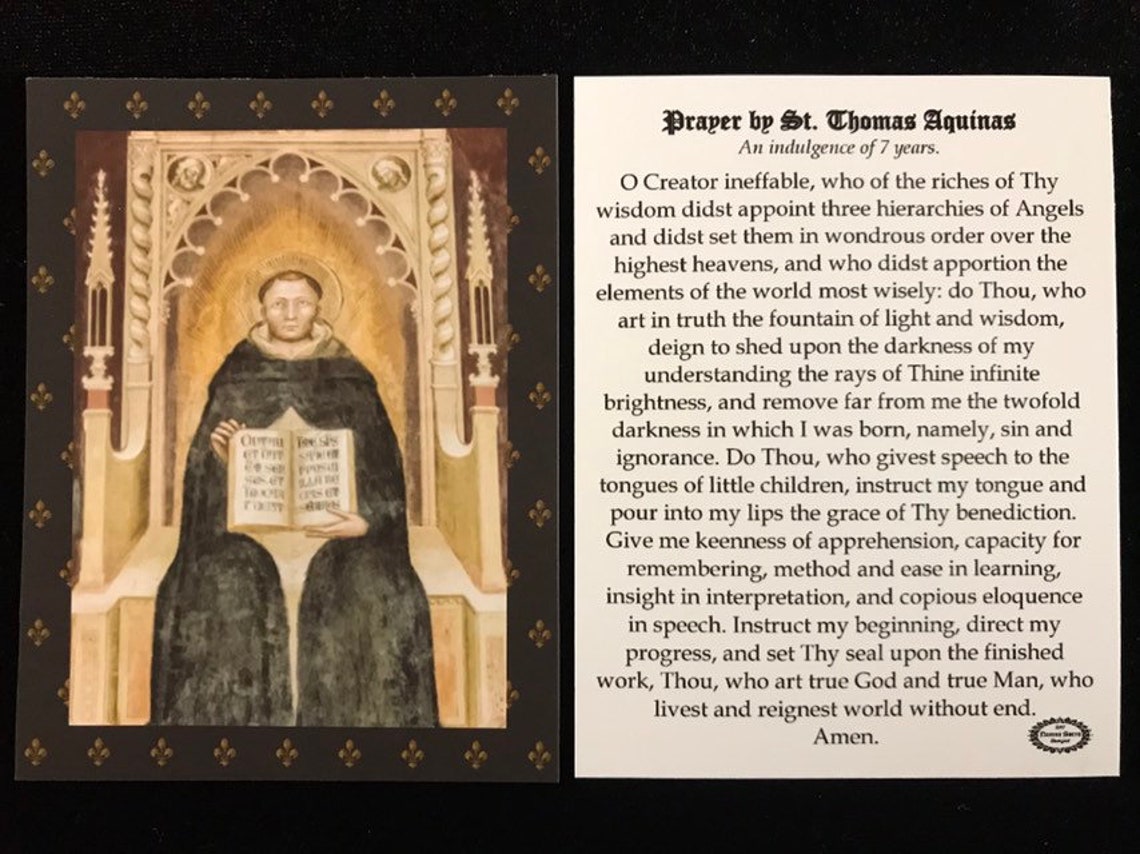 Prayer by St. Thomas Aquinas
An indulgence of 7 years.
O Creator ineffable, who of the riches of Thy
wisdom didst appoint three hierarchies of Angels
and didst set them in wondrous order over the
highest heavens, and who didst apportion the
elements of the world most wisely: do Thou, who
art in truth the fountain of light and wisdom,
deign to shed upon the darkness of my
understanding the rays of Thine infinite
brightness, and remove far from me the twofold
darkness in which I was born, namely, sin and
ignorance. Do Thou, who givest speech to the
tongues of little children, instruct my tongue and
pour into my lips the grace of Thy benediction.
Give me keenness of apprehension, capacity for
remembering, method and ease in learning,
insight in interpretation, and copious eloquence
in speech. Instruct my beginning, direct my
progress, and set Thy seal upon the finished
work, Thou, who art true God and true Man, who
livest and reignest world without end.
Amen.